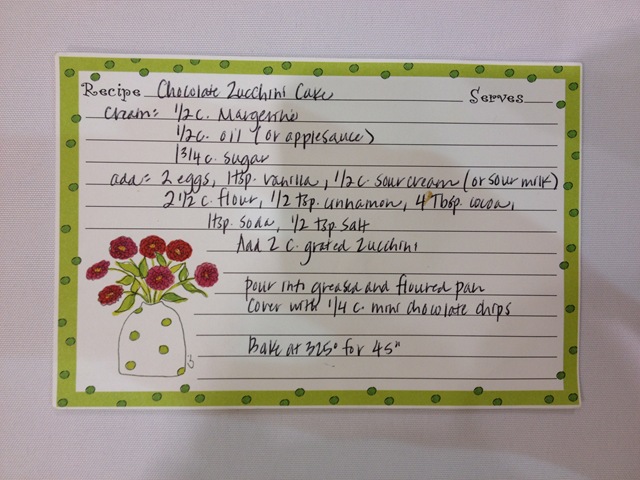 Recipe Chocolate Zucchini Cake Serves
Cream: 1/2 c. Margerine
1/2 c. oil (or applesauce)
1 3/4 c. sugar
add: 2 eggs, 1 tsp. vanilla, 1/2 c. sour cream (or sour milk)
2 1/2 c. flour, 1/2 tsp. cinnamon, 4 Tbsp. cocoa,
1 tsp. soda, 1/2 tsp salt
Add 2 c. grated Zucchini
pour into greased and floured pan
Cover with 1/4 c. mini chocolate chips
Bake at 325° for 45"